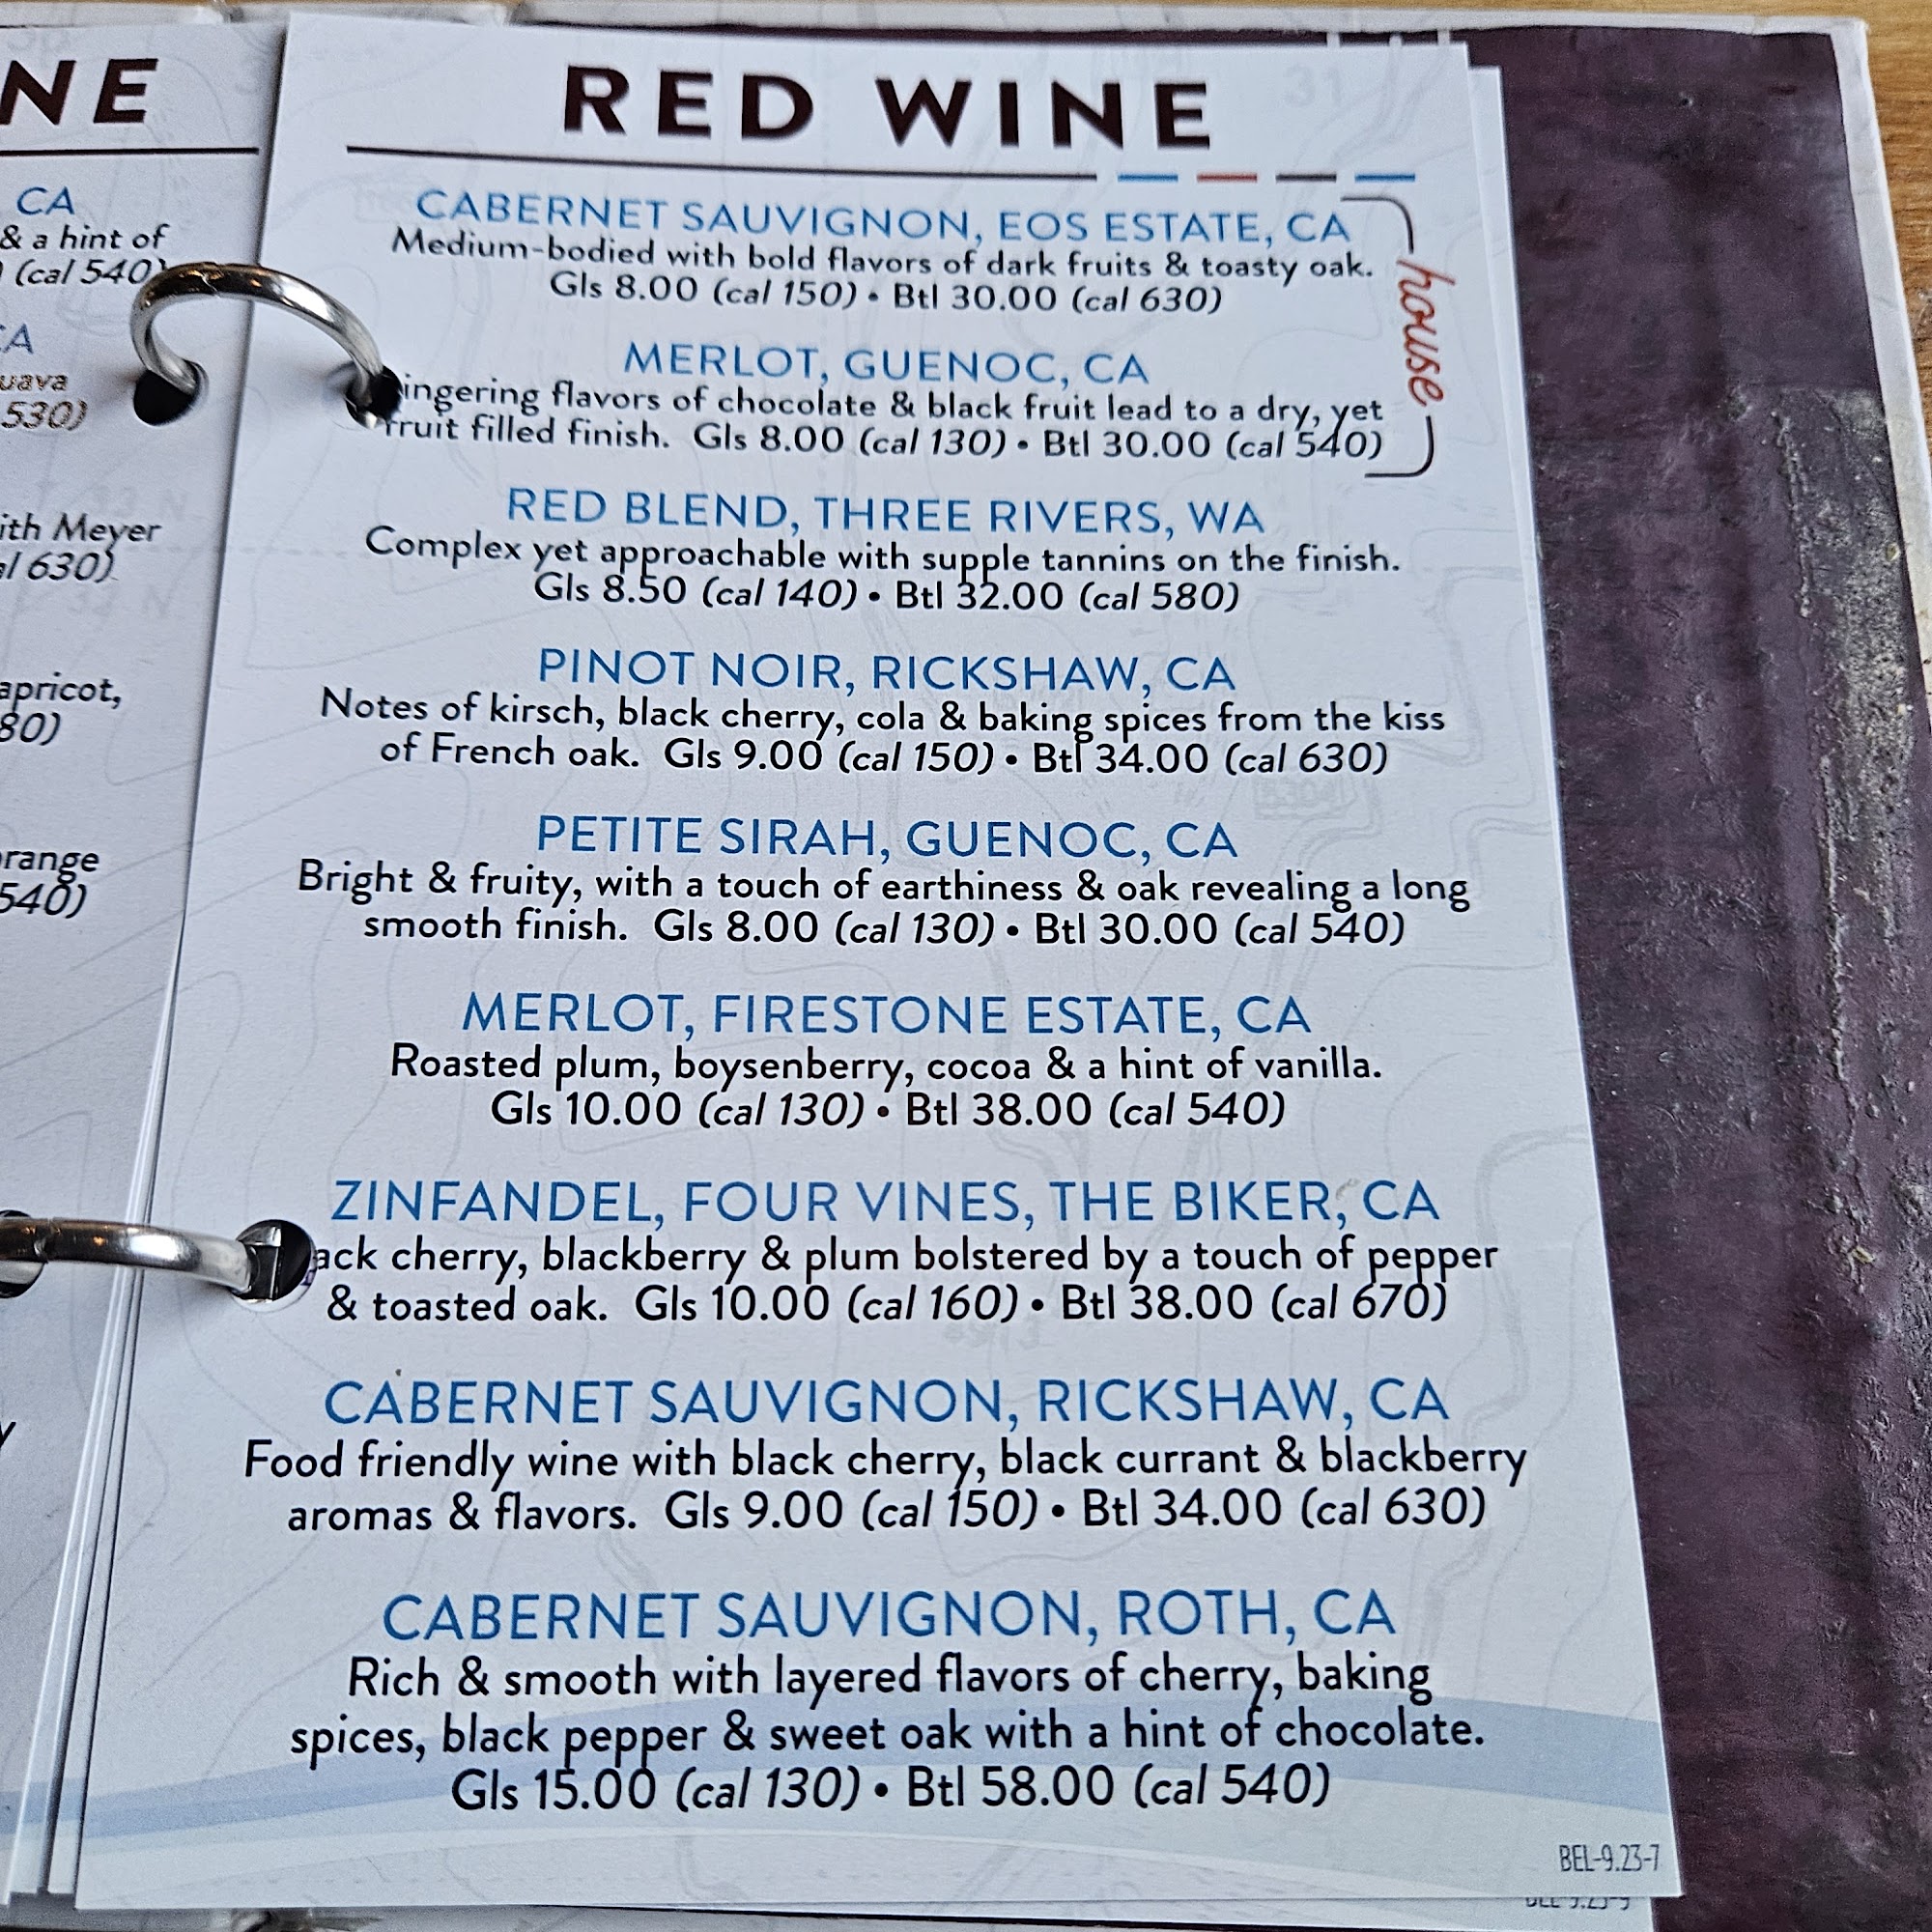 NE
CA
& a hint of
(cal 540)
CA
530)
ith Meyer
630)
apricot,
80)
range
540)
RED WINE
CABERNET SAUVIGNON, EOS ESTATE, CA
Medium-bodied with bold flavors of dark fruits & toasty oak.
Gls 8.00 (cal 150) • Btl 30.00 (cal 630)
MERLOT, GUENOC, CA
ingering flavors of chocolate & black fruit lead to a dry, yet
fruit filled finish. Gls 8.00 (cal 130) • Btl 30.00 (cal 540)
house
RED BLEND, THREE RIVERS, WA
Complex yet approachable with supple tannins on the finish.
Gls 8.50 (cal 140) • Btl 32.00 (cal 580)
PINOT NOIR, RICKSHAW, CA
Notes of kirsch, black cherry, cola & baking spices from the kiss
of French oak. Gls 9.00 (cal 150) • Btl 34.00 (cal 630)
PETITE SIRAH, GUENOC, CA
Bright & fruity, with a touch of earthiness & oak revealing a long
smooth finish. Gls 8.00 (cal 130) • Btl 30.00 (cal 540)
MERLOT, FIRESTONE ESTATE, CA
Roasted plum, boysenberry, cocoa & a hint of vanilla.
Gls 10.00 (cal 130) • Btl 38.00 (cal 540)
ZINFANDEL, FOUR VINES, THE BIKER, CA
ack cherry, blackberry & plum bolstered by a touch of pepper
& toasted oak. Gls 10.00 (cal 160) • Btl 38.00 (cal 670)
CABERNET SAUVIGNON, RICKSHAW, CA
Food friendly wine with black cherry, black currant & blackberry
aromas & flavors. Gls 9.00 (cal 150) • Btl 34.00 (cal 630)
CABERNET SAUVIGNON, ROTH, CA
Rich & smooth with layered flavors of cherry, baking
spices, black pepper & sweet oak with a hint of chocolate.
Gls 15.00 (cal 130) • Btl 58.00 (cal 540)
BEL-9.23-7